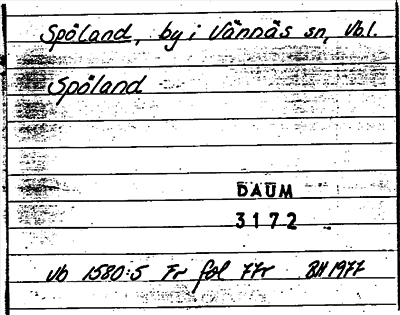 Spöland, by i Vännäs sn, Vbl.
Spöland
DAUM
3172
Vb 1580:5 Fr fol 77r BH 1977